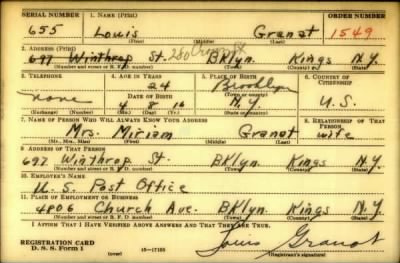 SERIAL NUMBER 1. NAME (Print) ORDER NUMBER
655 Louis Granat 1549
2. ADDRESS (Print)
697 Winthrop St. BKlyn. Kings N.Y.
(Number and street or R. F. D. number) (Town) (County) (State)
3. TELEPHONE 4. AGE IN YEARS 5. PLACE OF BIRTH 6. COUNTRY OF CITIZENSHIP
none 24 Brooklyn U.S.
DATE OF BIRTH (Town or county)
4 8 16 N.Y.
(Exchange) (Number) (Mo.) (Day) (Yr.) (State or country)
7. NAME OF PERSON WHO WILL ALWAYS KNOW YOUR ADDRESS 8. RELATIONSHIP OF THAT PERSON
Mrs. Miriam Granat wife
(Mr., Mrs., Miss) (First) (Middle) (Last)
9. ADDRESS OF THAT PERSON
697 Winthrop St. BKlyn. Kings N.Y.
(Number and street or R. F. D. number) (Town) (County) (State)
10. EMPLOYER'S NAME
U.S. Post Office
11. PLACE OF EMPLOYMENT OR BUSINESS
4806 Church Ave. BKlyn. Kings N.Y.
(Number and street or R. F. D. number) (Town) (County) (State)
I AFFIRM THAT I HAVE VERIFIED ABOVE ANSWERS AND THAT THEY ARE TRUE.
REGISTRATION CARD
D. S. S. Form 1 (over) 16—17105 Louis Granat
(Registrant's signature)